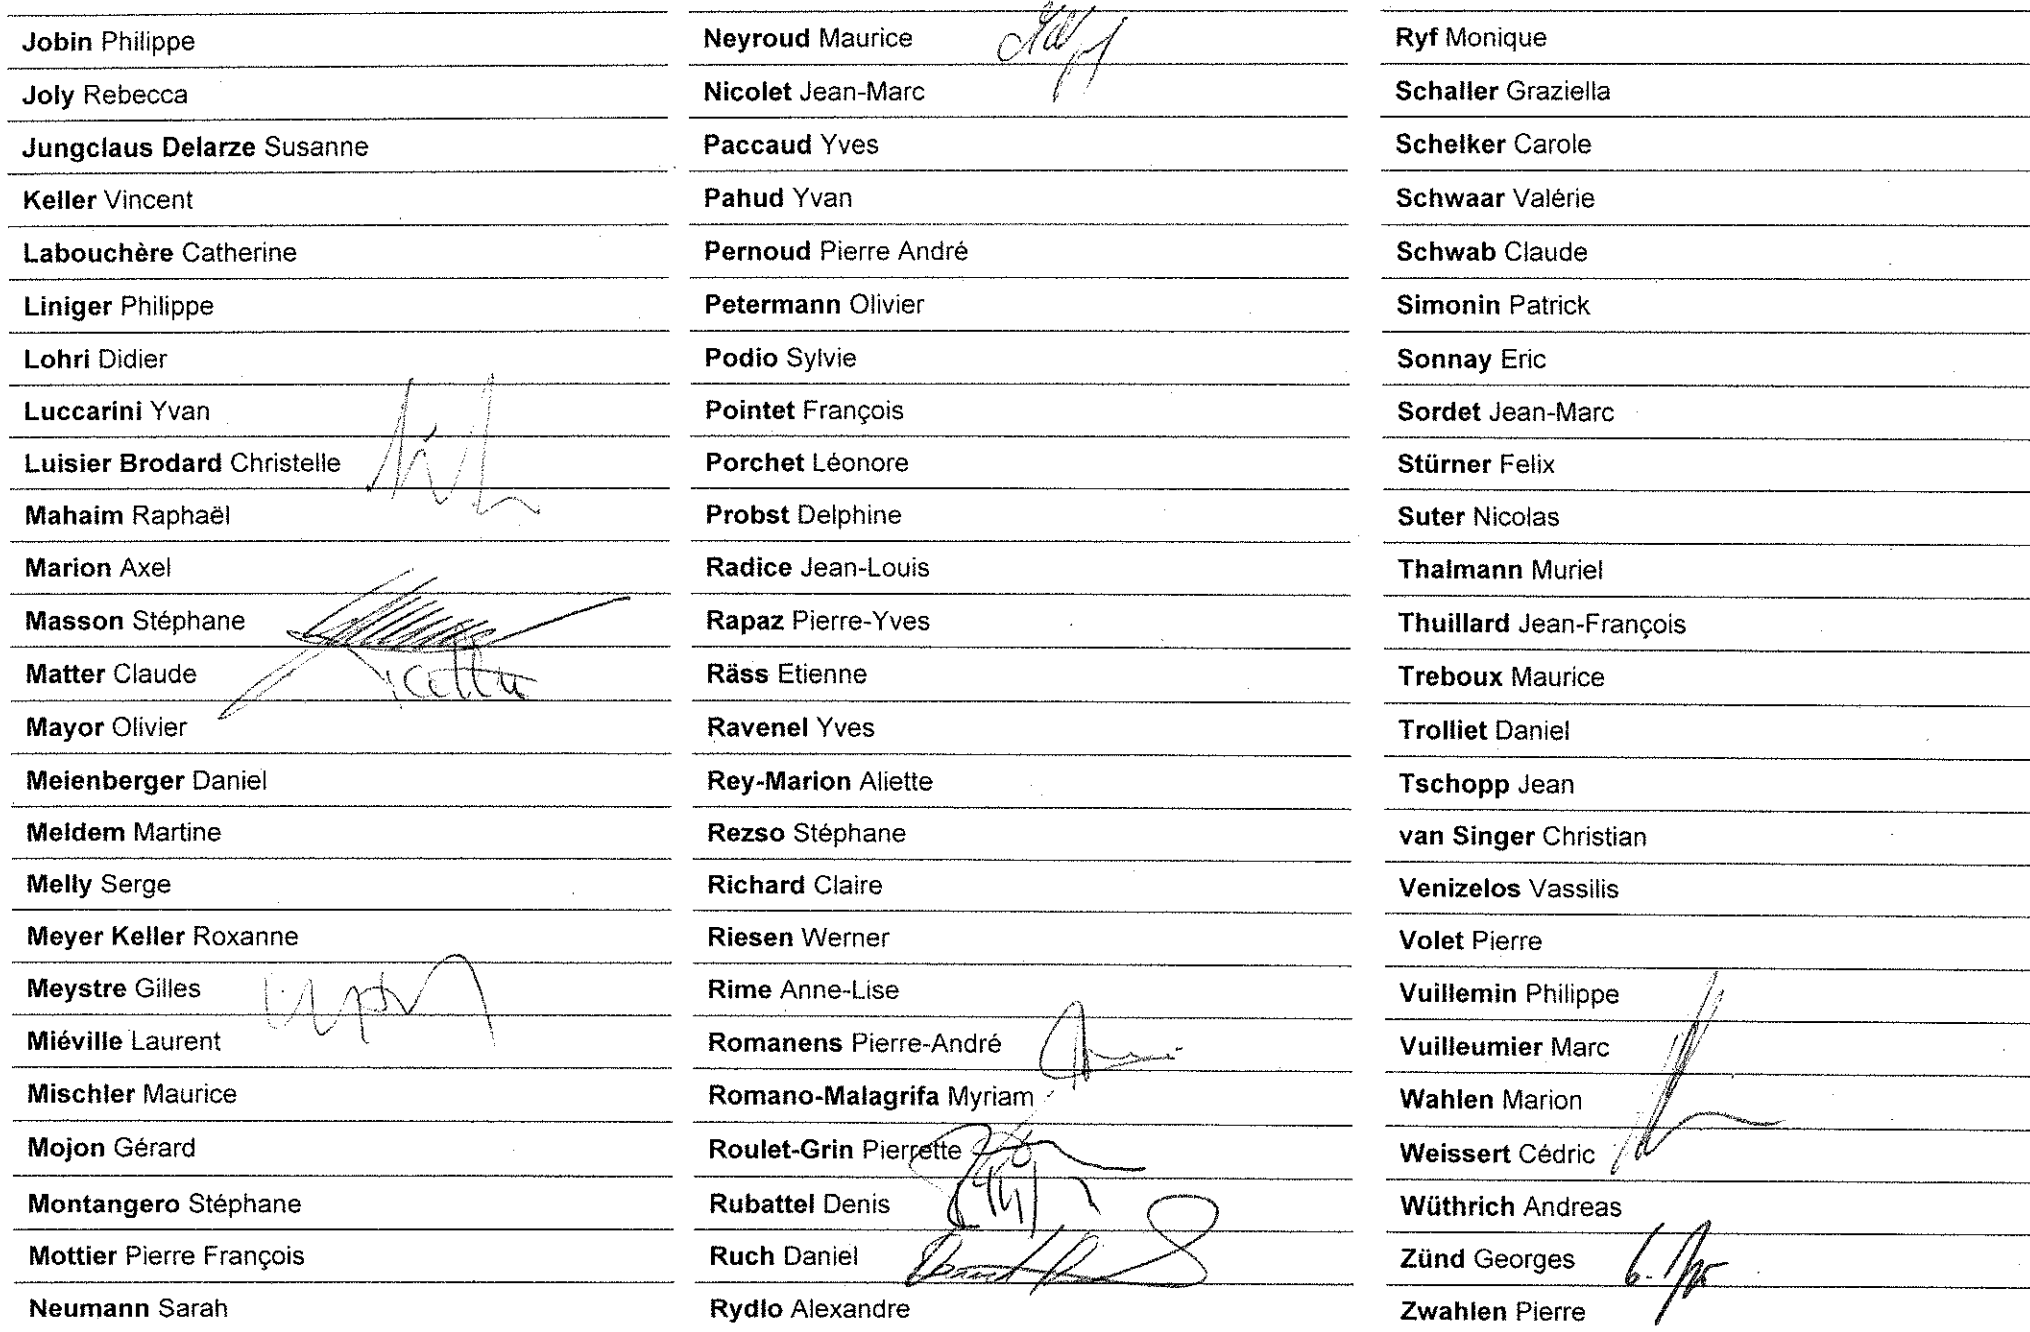 Jobin Philippe
Joly Rebecca
Jungclaus Delarze Susanne
Keller Vincent
Labouchère Catherine
Liniger Philippe
Lohri Didier
Luccarini Yvan
Luisier Brodard Christelle
Mahaim Raphaël
Marion Axel
Masson Stéphane
Matter Claude
Mayor Olivier
Meienberger Daniel
Meldem Martine
Melly Serge
Meyer Keller Roxanne
Meystre Gilles
Miéville Laurent
Mischler Maurice
Mojon Gérard
Montangero Stéphane
Mottier Pierre François
Neumann Sarah
Neyroud Maurice
Nicolet Jean-Marc
Paccaud Yves
Pahud Yvan
Pernoud Pierre André
Petermann Olivier
Podio Sylvie
Pointet François
Porchet Léonore
Probst Delphine
Radice Jean-Louis
Rapaz Pierre-Yves
Räss Etienne
Ravenel Yves
Rey-Marion Aliette
Rezso Stéphane
Richard Claire
Riesen Werner
Rime Anne-Lise
Romanens Pierre-André
Romano-Malagrifa Myriam
Roulet-Grin Pierrette
Rubattel Denis
Ruch Daniel
Rydlo Alexandre
Ryf Monique
Schaller Graziella
Schelker Carole
Schwaar Valérie
Schwab Claude
Simonin Patrick
Sonnay Eric
Sordet Jean-Marc
Stürner Felix
Suter Nicolas
Thalmann Muriel
Thuillard Jean-François
Treboux Maurice
Trolliet Daniel
Tschopp Jean
van Singer Christian
Venizelos Vassilis
Volet Pierre
Vuillemin Philippe
Vuilleumier Marc
Wahlen Marion
Weissert Cédric
Wüthrich Andreas
Zünd Georges
Zwahlen Pierre